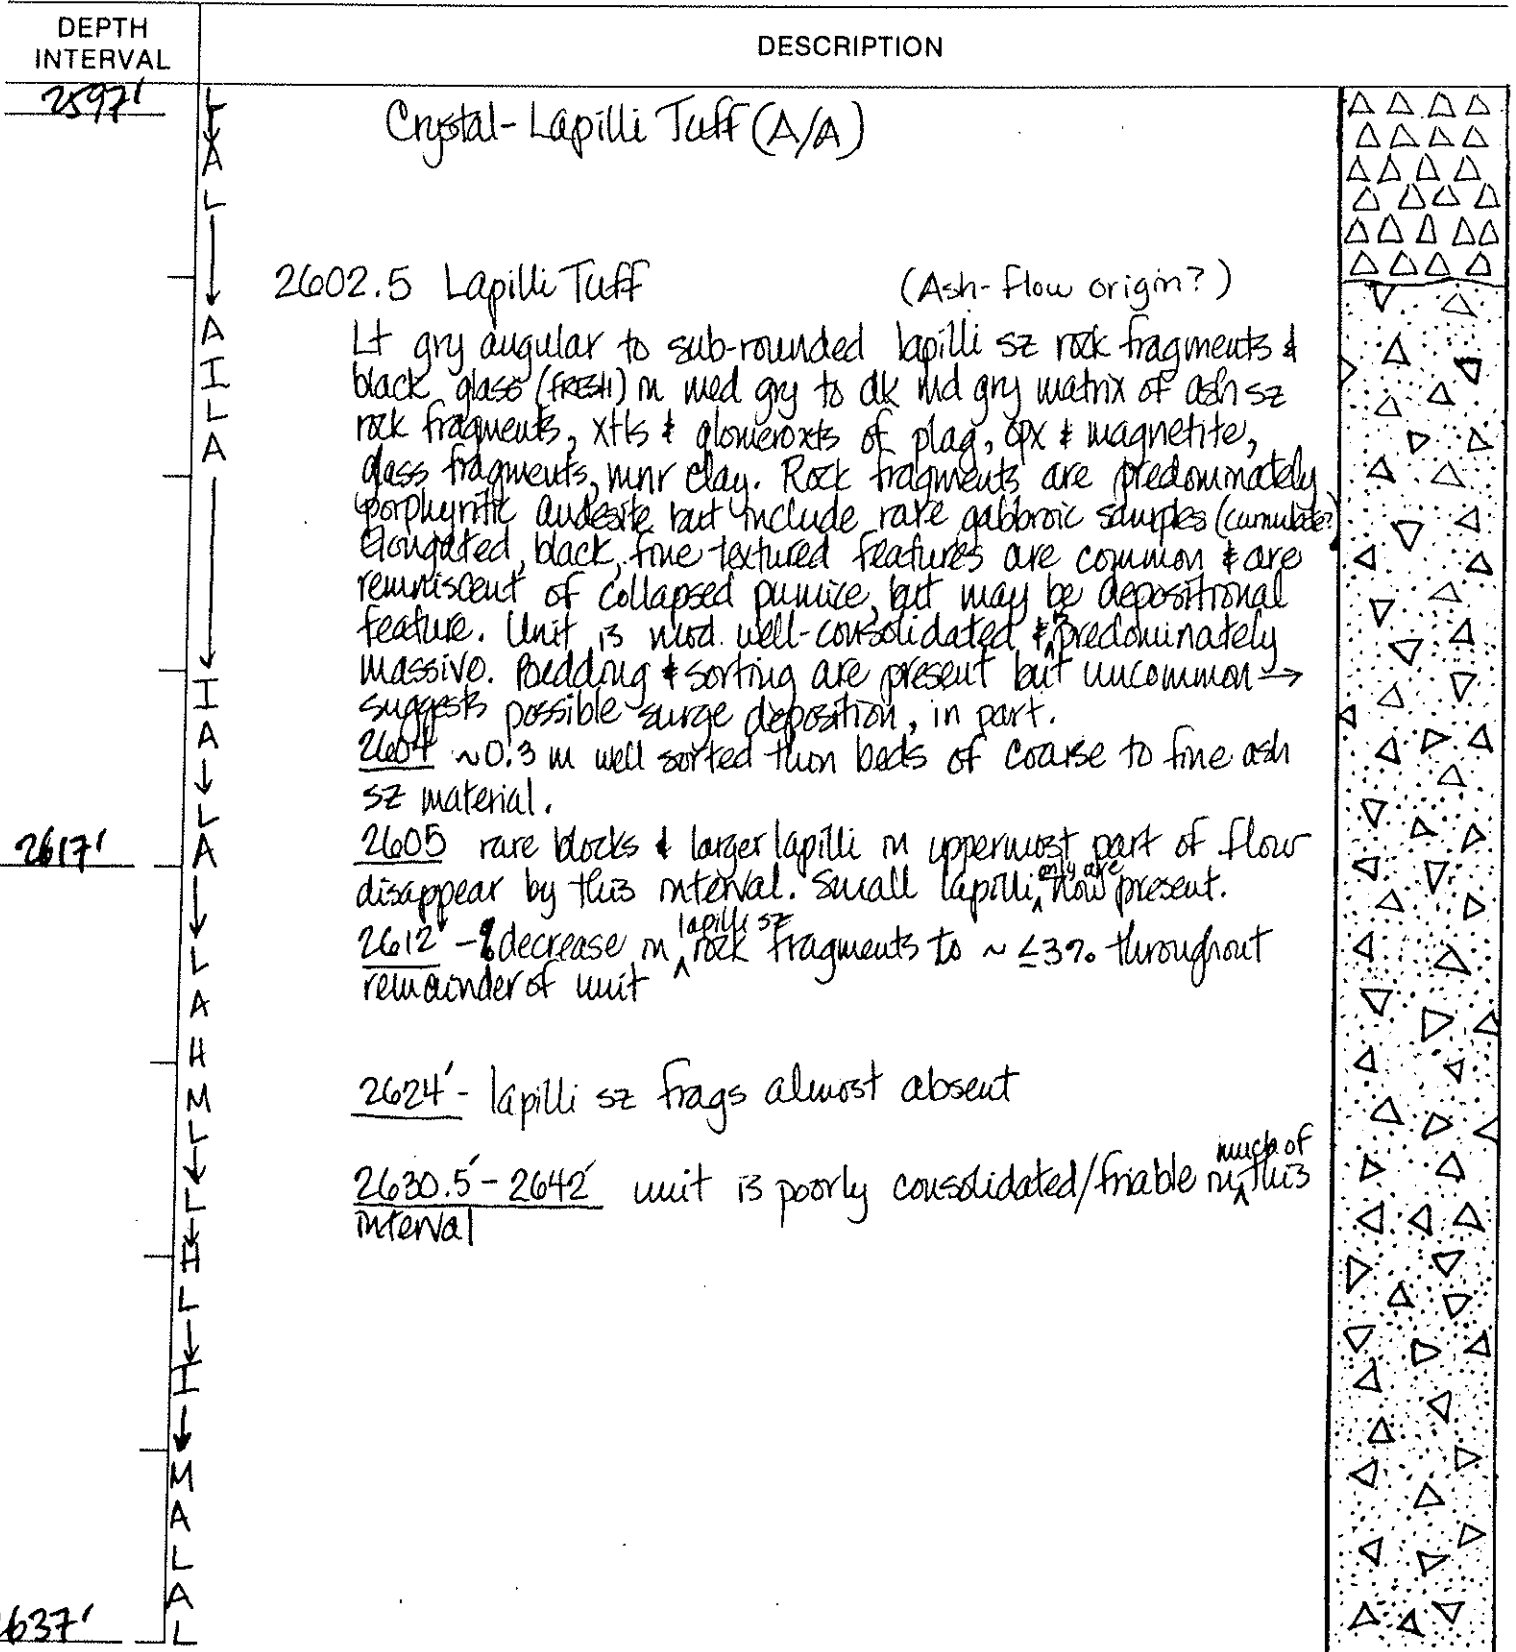 DEPTH
INTERVAL
DESCRIPTION
2597'
Crystal-Lapilli Tuff (A/A)
2602.5 Lapilli Tuff (Ash-flow origin?)
Lt gry angular to sub-rounded lapilli sz rock fragments &
black glass (FRESH) in med gry to dk md gry matrix of ash sz
rock fragments, xtls & gloméroxts of plag, cpx & magnetite,
glass fragments, mnr clay. Rock fragments are predominately
porphyritic andesite but include rare gabbroic samples (cumulate?)
Elongated, black, fine textured features are common & are
reminiscent of collapsed pumice, but may be depositional
feature. Unit is mod. well-consolidated & is predominately
massive. Bedding & sorting are present but uncommon →
suggests possible surge deposition, in part.
2604 ~0.3 m well sorted thin beds of coarse to fine ash
sz material.
2617'
2605 rare blocks & larger lapilli in uppermost part of flow
disappear by this interval. Small lapilli only are now present.
2612' - decrease in lapilli sz rock fragments to ~ ≤3% throughout
remainder of unit
2624' - lapilli sz frags almost absent
2630.5' - 2642' unit is poorly consolidated/friable in much of this
interval
2637'
L
↓
A
L
↓
A
I
L
A
↓
I
A
↓
L
A
↓
L
A
H
M
L
↓
L
↓
H
L
↓
I
↓
M
A
L
A
L